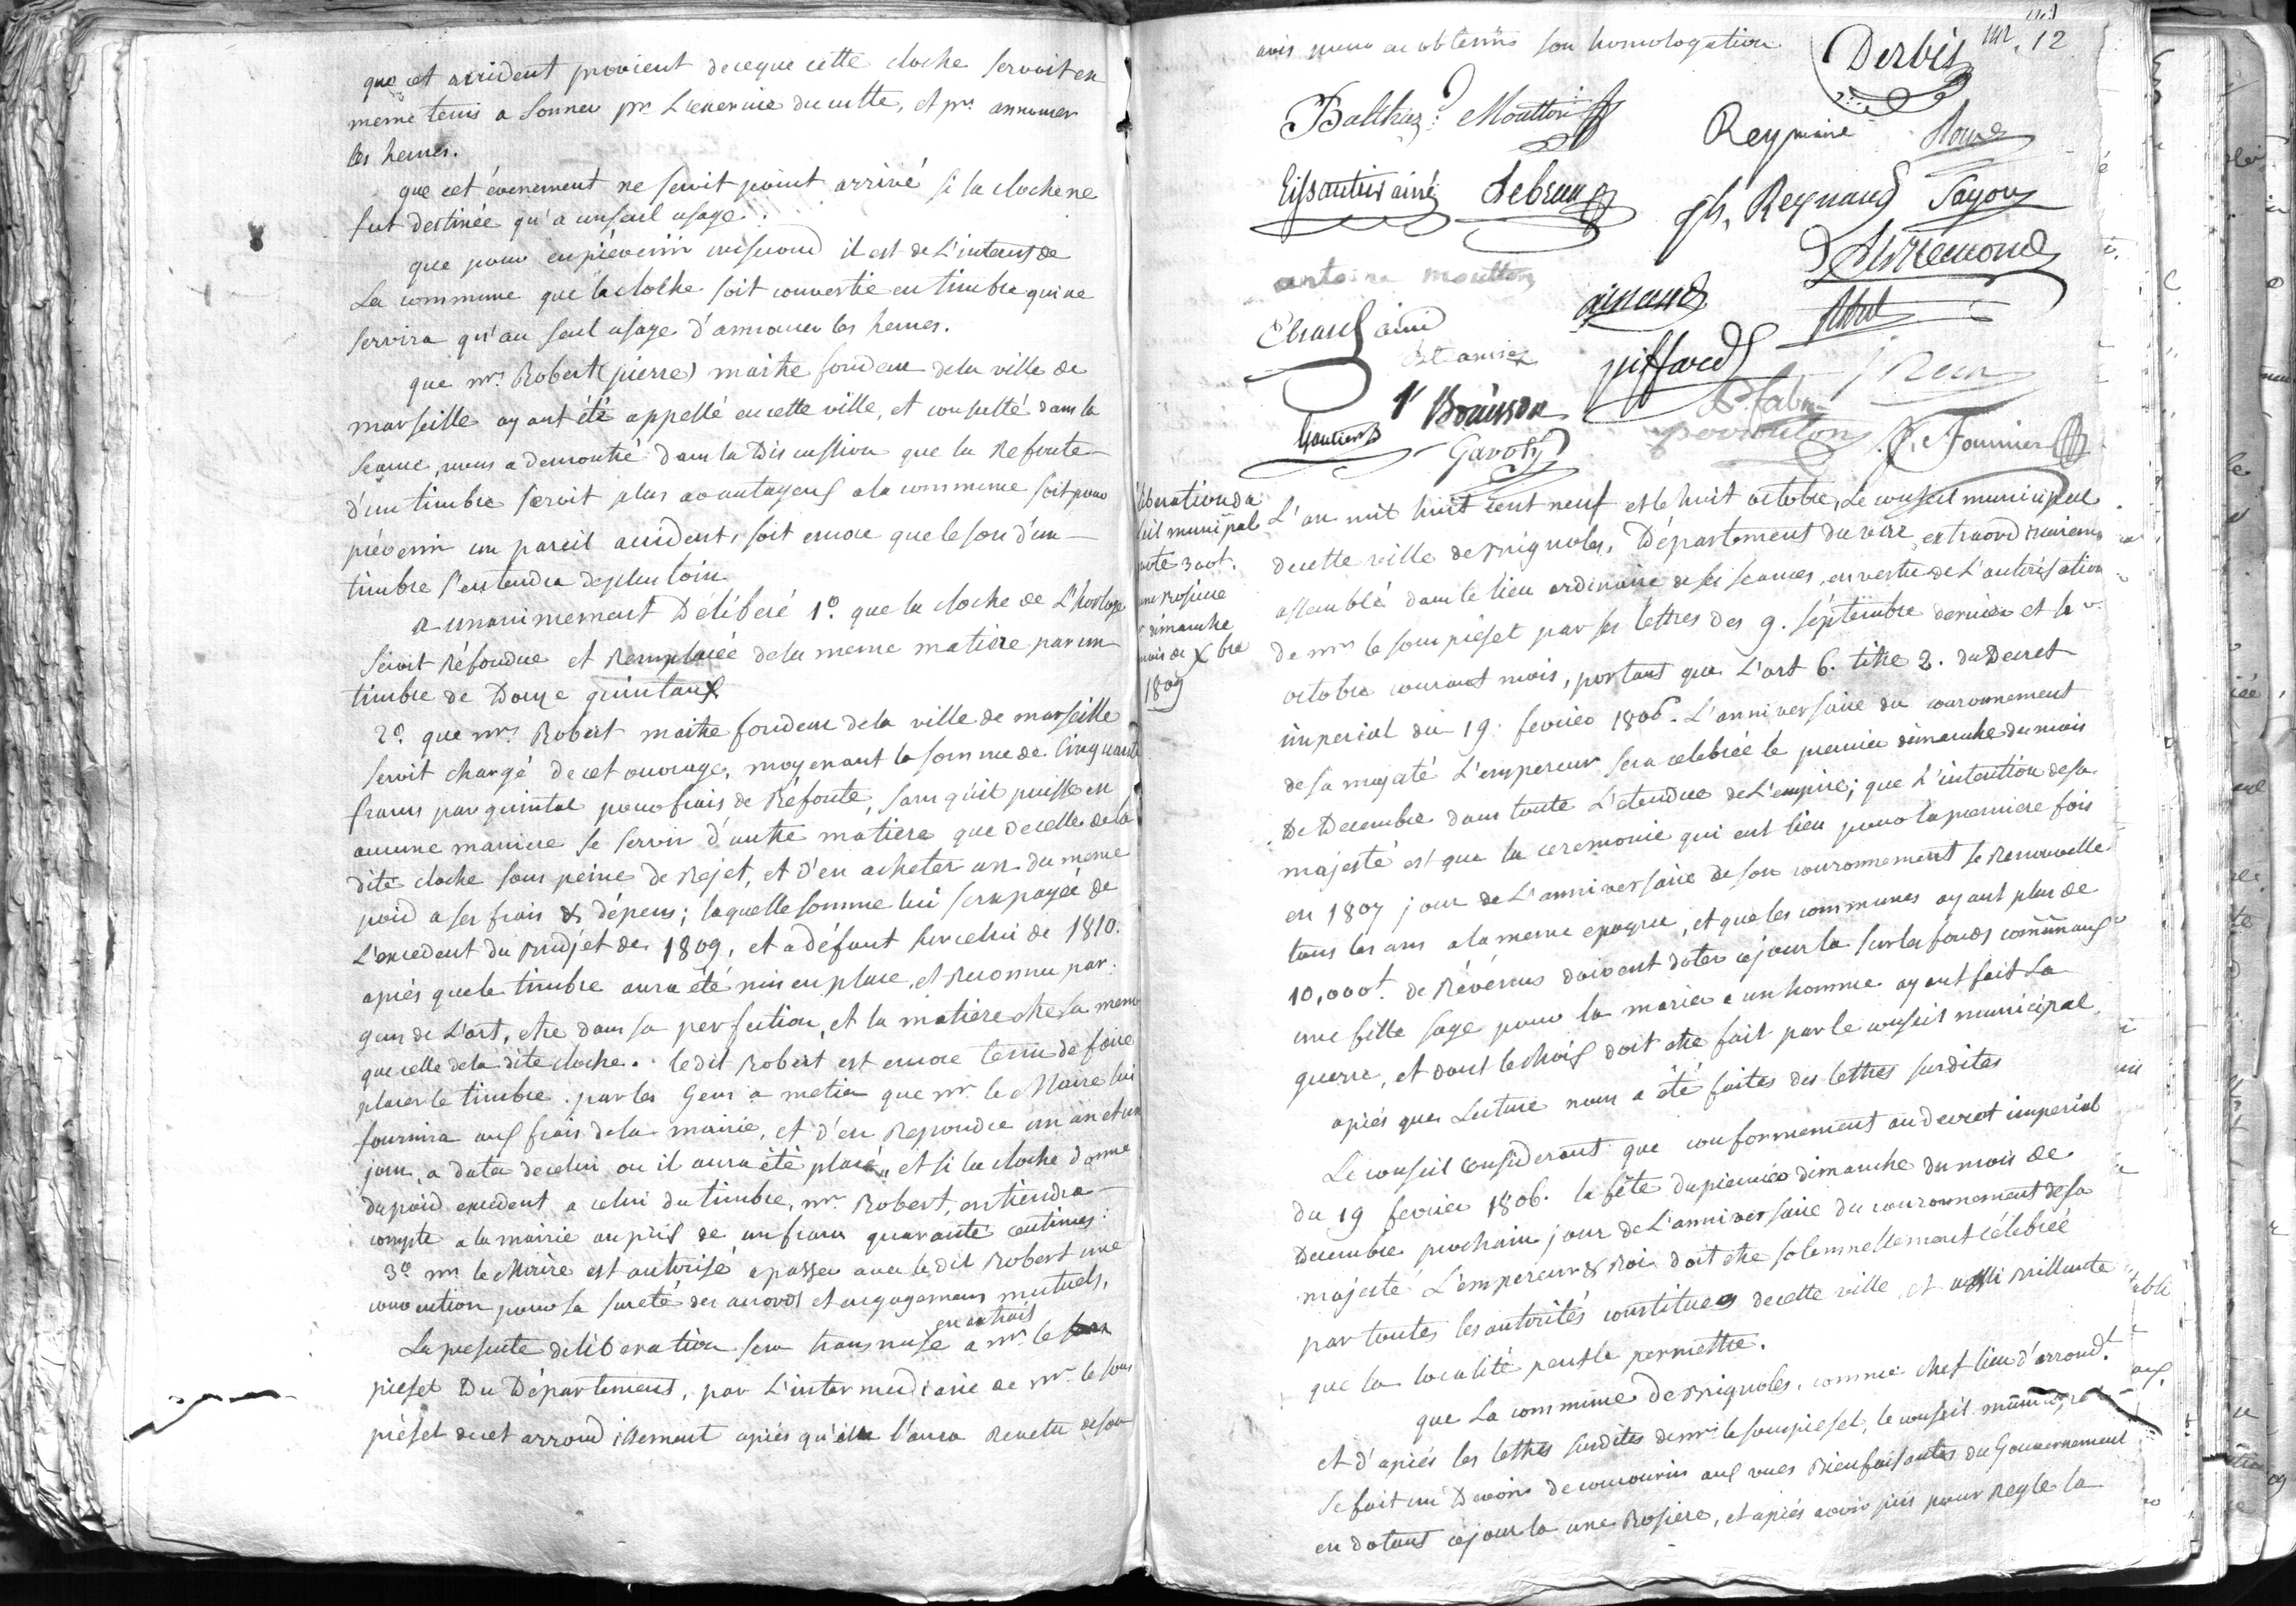 que cet accident provient de ceque cette cloche servoit en
meme tems a sonner pr. L'exercice du culte, et pr. annoncer
les heures.
que cet évenement ne seroit point arrivé si la cloche ne
fut destinée qu'a un seul usage.
que pour en prévenir un second il est de L'interest de
La commune que la cloche soit convertie en timbre qui ne
servira qu'au seul usage d'annoncer les heures.
que mr. Robert (pierre) maitre fondeur de la ville de
marseille ayant été appellé en cette ville, et consulté dans la
Seance, nous a demontré dans la Discussion que la Refonte
d'un timbre seroit plus avantageux a la commune soit pour
prévenir un pareil accident, soit encore que le son d'un
timbre s'entendra de plus loin.
a unanimement Délibéré 1º. que la cloche de L'horloge
seroit Réfondue et Remplacée de la meme matiere par un
timbre de Douze quintaux
2º. que mr. Robert maitre fondeur de la ville de marseille
seroit chargé de cet ouvrage, moyenant la somme de Cinquante
francs par quintal pour frais de Réfonte, sans qu'il puisse en
aucune maniere se servir d'autre matiere que de celle de la
dite cloche sous peine de Rejet, et d'en acheter un du meme
poid a ses frais & dépens; laquelle somme lui sera payée de
L'excedent du Budjet de 1809, et a défaut sur celui de 1810.
après que le timbre aura été mis en place, et Reconnu par
gens de L'art, etre dans sa perfection, et la matiere etre la meme
que celle de la dite cloche. le dit Robert est encore tenu de faire
placer le timbre par les Gens a metier que mr. le Maire lui
fournira aux frais de la mairie, et d'en Repondre un an et un
jour, a dater de celui ou il aura été placé, et si la cloche donne
du poid excedent a celui du timbre, mr. Robert, en tiendra
compte a la mairie au prix de un franc quarante centimes.
3º mr le Maire est autorisé a passer avec le dit Robert une
convention pour la sureté des accords et engagemens mutuels.
La presente deliberation sera transmise en extrait a mr. le
préfet Du Département, par L'intermediaire de mr. le sous
préfet de cet arrondissement après qu'il l'aura Revetu de son
avis pour en obtenir son homologation
Derbès 12
Balthaz. Moutton
Rey maire
Eissautier ainé Lebrun
Reynaud Fayon
antoine moutton
ainé
giffard
Bouisson
P. fabre
Gautier
Gavoty
Fournier
libération du
seil municipal
dote 300t.
une Rosiere
r dimanche
mois de Xbre
1809
L'an mil huit cent neuf et le huit octobre, Le conseil municipal
de cette ville de Brignoles, Département du var, extraordinairemt
assemblé dans le lieu ordinaire de ses seances, en vertu de L'autorisation
de mr le sous préfet par ses lettres des 9. séptembre dernier et 1er
octobre courant mois, portant que L'art 6. titre 2. du Decret
impérial du 19. fevrier 1806. L'anniversaire du couronnement
de sa majesté L'empereur sera celebrée le premier dimanche du mois
De Decembre dans toute L'etendue de L'empire; que L'intention de sa
majesté est que la ceremonie qui eut lieu pour la premiere fois
en 1807 jour de L'anniversaire de son couronnement se Renouvelle
tous les ans a la meme epoque, et que les communes ayant plus de
10,000t. de Révénus doivent doter ce jour la sur les fonds communaux
une fille sage pour la marier a un homme ayant fait La
guerre, et dont le choix doit etre fait par le conseil municipal
après que Lecture nous a été faites des lettres susdites
Le conseil Considerant que conformement au decret imperial
du 19 fevrier 1806. la fête du premier dimanche du mois de
Decembre prochain jour de L'anniversaire du couronnement de sa
majesté L'empereur & Roi doit etre solemnellement célébrée
par toutes les autorités constituées de cette ville, et aussi Brillante
que la localité peut le permettre.
que La commune de Brignoles, comme chef lieu d'arrondt.
et d'après les lettres susdites de mr le sous préfet, le conseil municipal
se fait un Devoir de concourir aux vues Bienfaisantes du Gouvernement
en dotant ce jour la une Rosiere, et après avoir pris pour Regle la